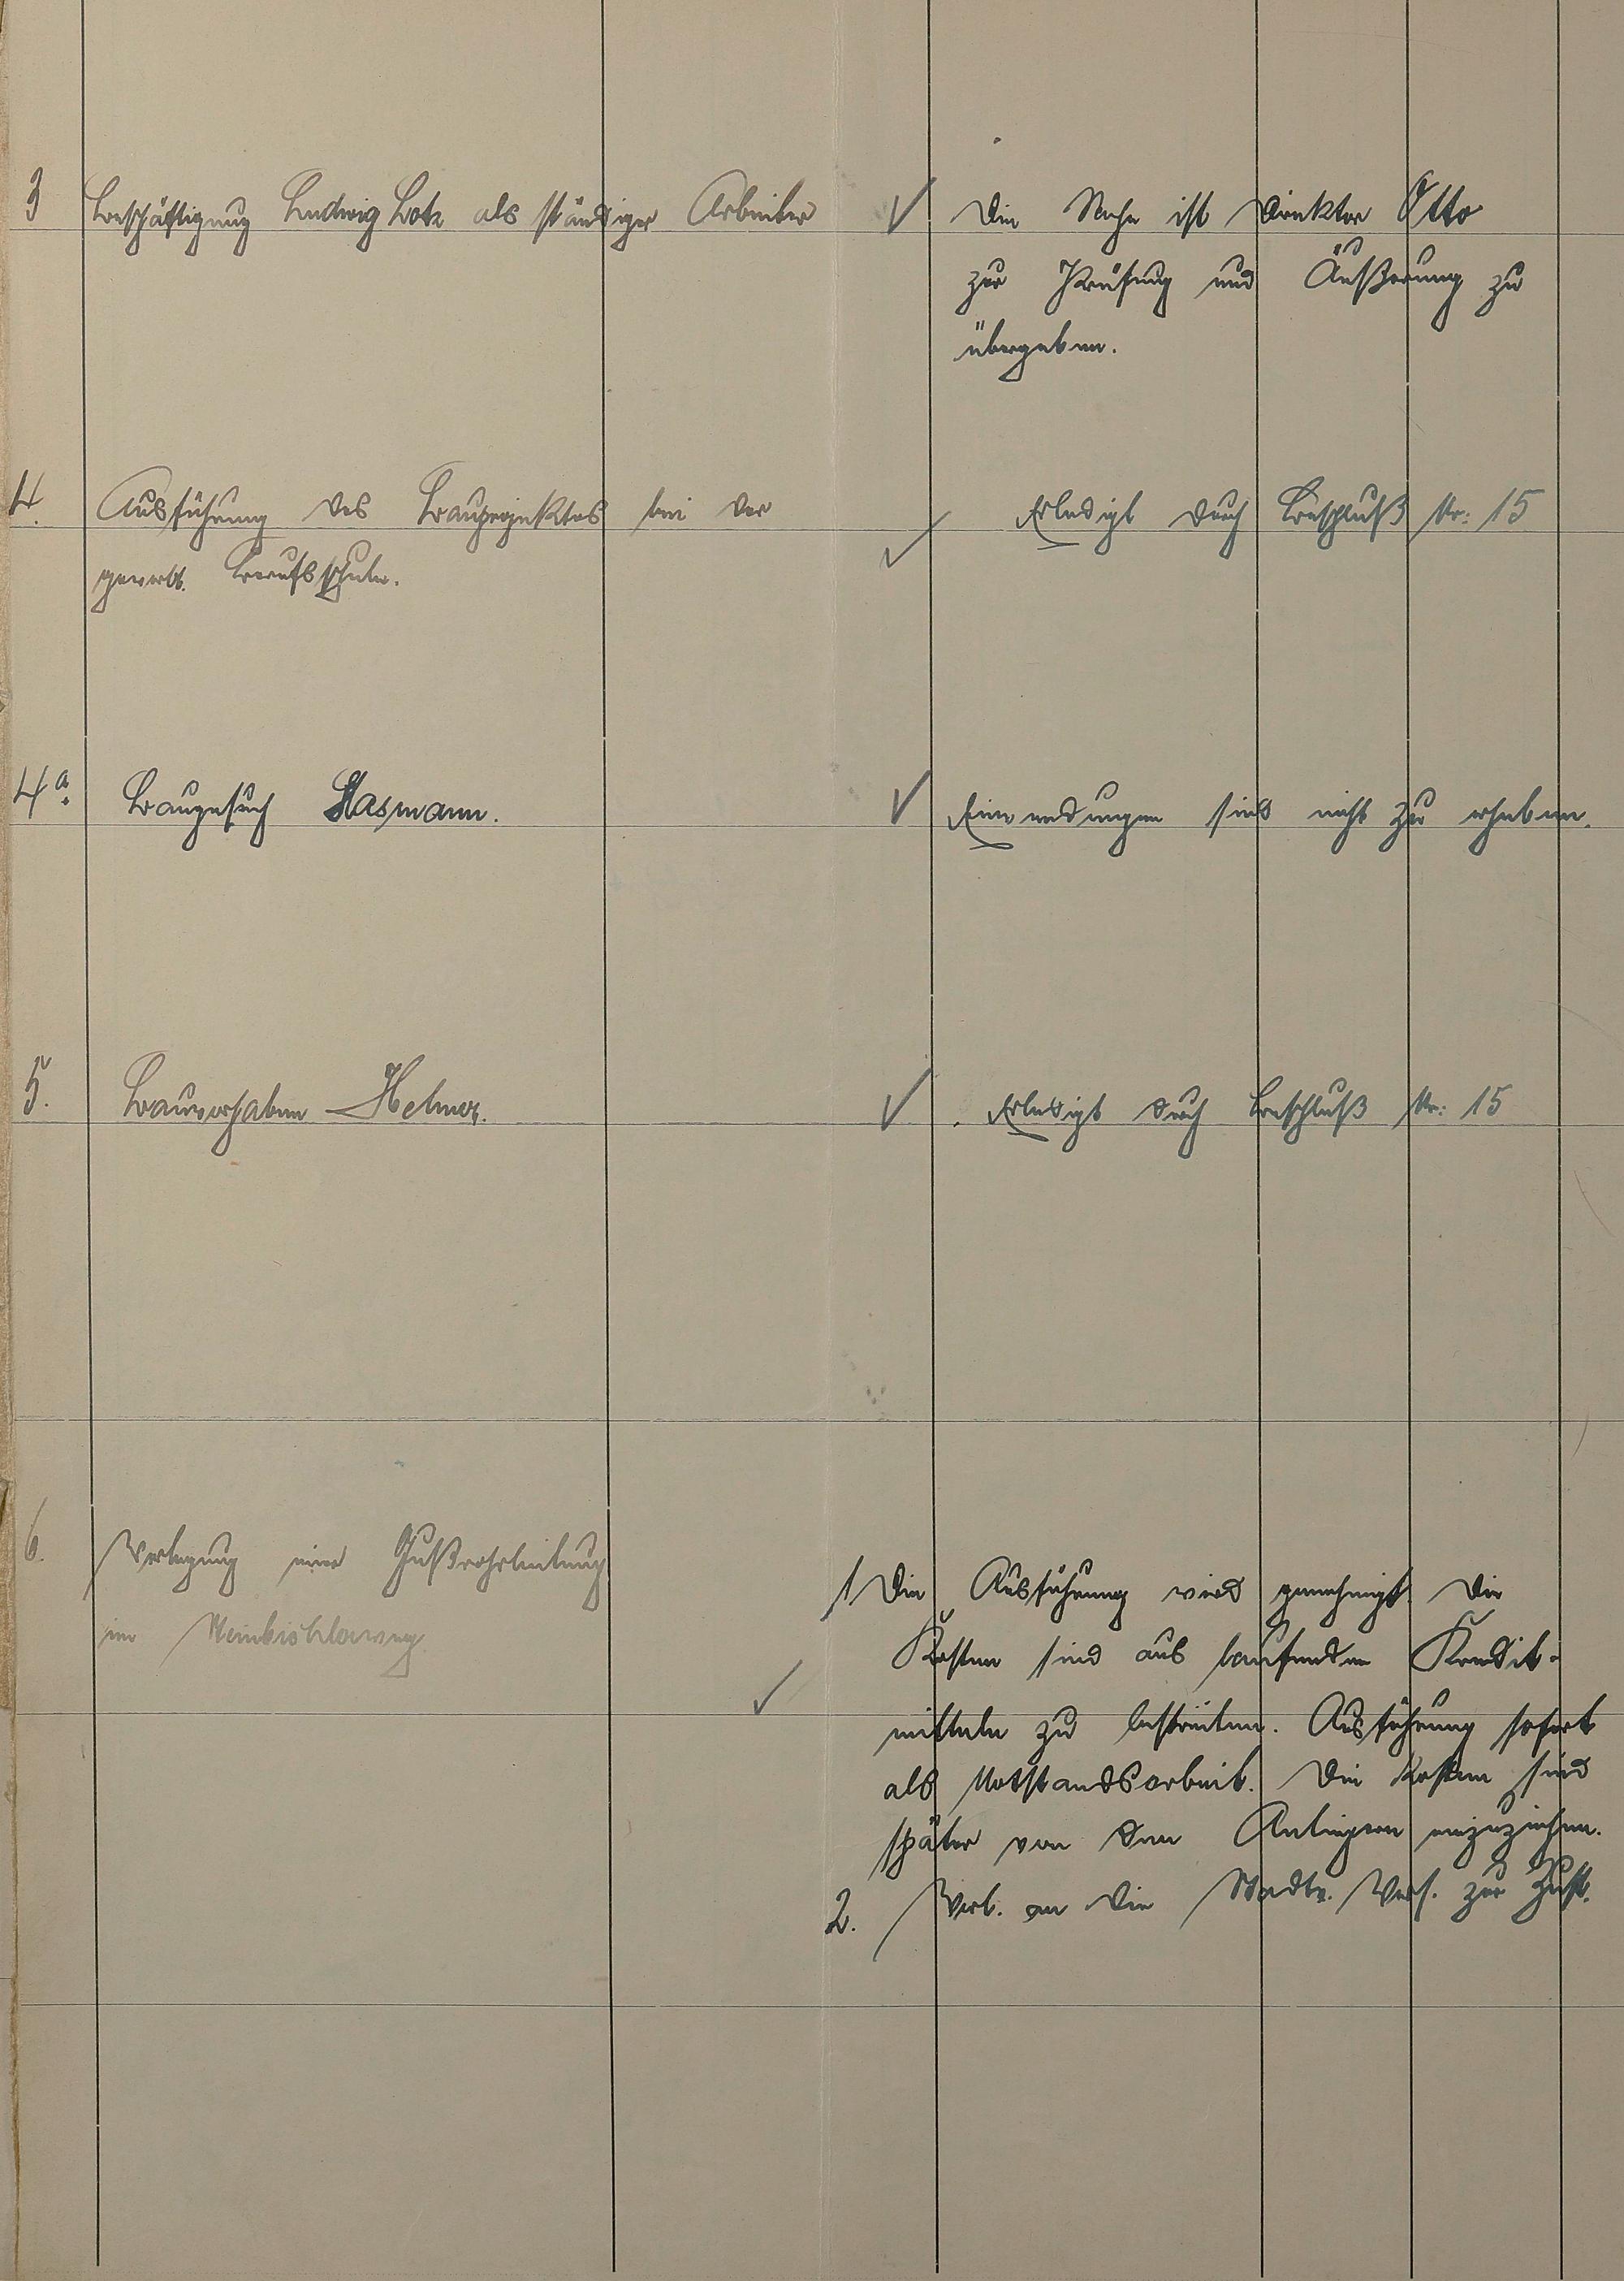 3 Beschäftigung Ludwig Lotz als ständiger Arbeiter
Die Sache ist Direktor Otto
zur Prüfung und Äußerung zu
übergeben.
4. Ausführung des Bauprojektes bei der
gewerbl. Berufsschule.
Erledigt durch Beschluß Nr: 15
4a. Baugesuch Hasmann.
Einwendungen sind nicht zu erheben.
5. Bauvorhaben Helmer.
Erledigt durch Beschluß Nr: 15
6. Verlegung einer Gußrohrleitung
im
1 Die Ausführung wird genehmigt. Die
Kosten sind aus laufenden Kredit-
mitteln zu bestreiten. Ausführung sofort
als Notstandsarbeit. Die Kosten sind
später von den Anliegern einzuziehen.
2. Vorl. an die Stadtv. Vers. zur Zust.